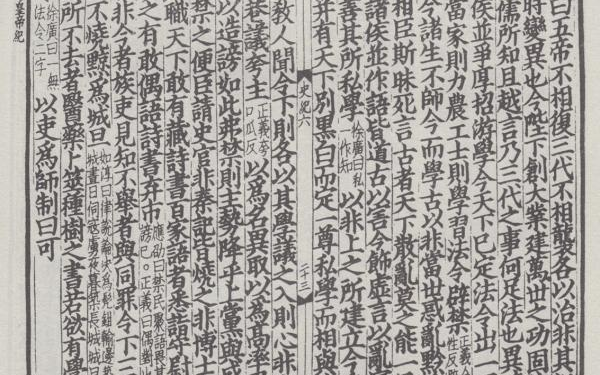 曰五帝不相復三代不相襲各以治非其
時變異也今陛下創大業建萬世之功固
儒所知且越言乃三代之事何足法也異
侯並爭厚招游學今天下已定法令出一
當家則力農工士則學習法令辟禁
今諸生不師今而學古以非當世惑亂黔
相臣斯昧死言古者天下散亂莫之能一
諸侯並作語皆道古以害今飾虛言以亂
善其所私學徐廣曰私一作知以非上之所建立今
并有天下別黑白而定一尊私學而相與
史記六 二十三
教人聞令下則各以其學議之入則心非
巷議夸主正義夸口瓜反以爲名異取以爲高率
以造謗如此弗禁則主勢降乎上黨與成
禁之便臣請史官非秦記皆燒之非博士
職天下敢有藏詩書百家語者悉詣守尉
之有敢偶語詩書弃市應劭曰禁民聚語畏其謗已。正義曰偶對
非今者族吏見知不舉者與同罪令下三
不燒黥爲城旦如淳曰律說論決爲髡鉗輸邊築城晝日伺寇虜夜暮築長城城旦
所不去者醫藥卜筮種樹之書若欲有學
徐廣曰一無法令二字以吏爲師制曰可
皇帝紀